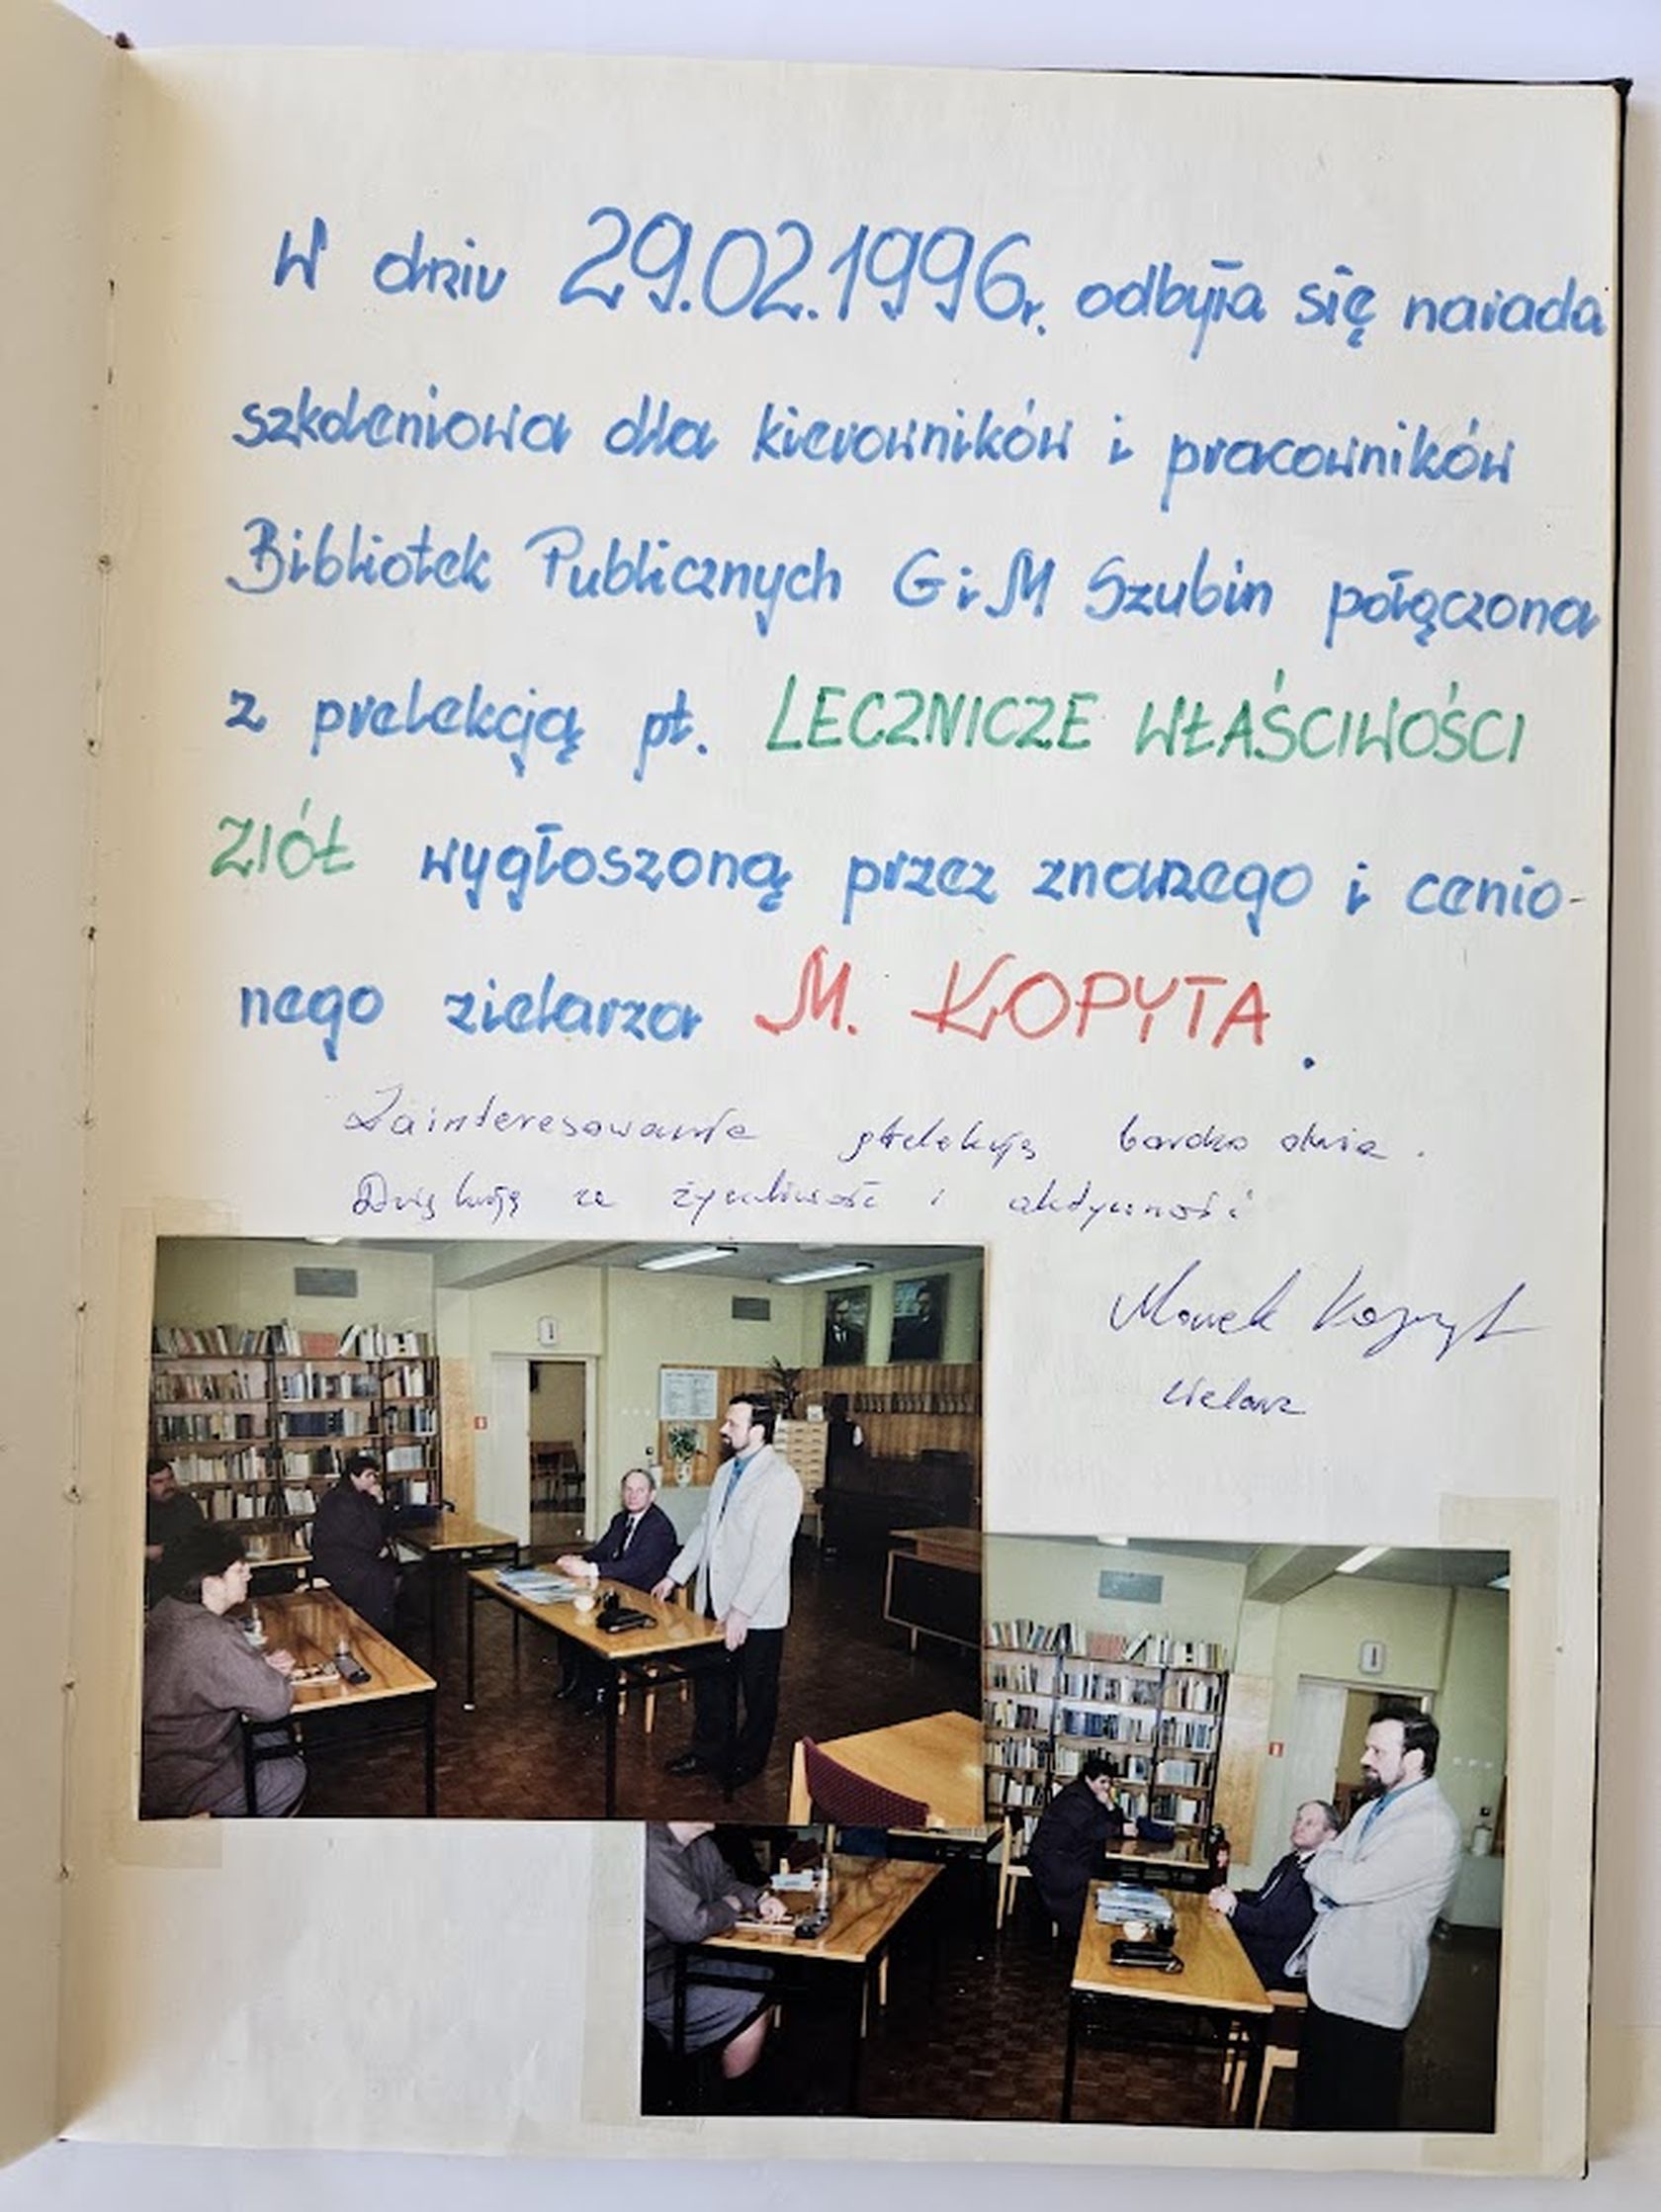 W dniu 29.02.1996r. odbyła się narada
szkoleniowa dla kierowników i pracowników
Bibliotek Publicznych GiM Szubin połączona
z prelekcją pt. LECZNICZE WŁAŚCIWOŚCI
ZIÓŁ wygłoszoną przez znanego i cenio-
nego zielarza M. KOPYTA.
Zainteresowanie prelekcją bardzo duże.
Dziękuję za życzliwość i aktywność
Marek Kopyt
zielarz